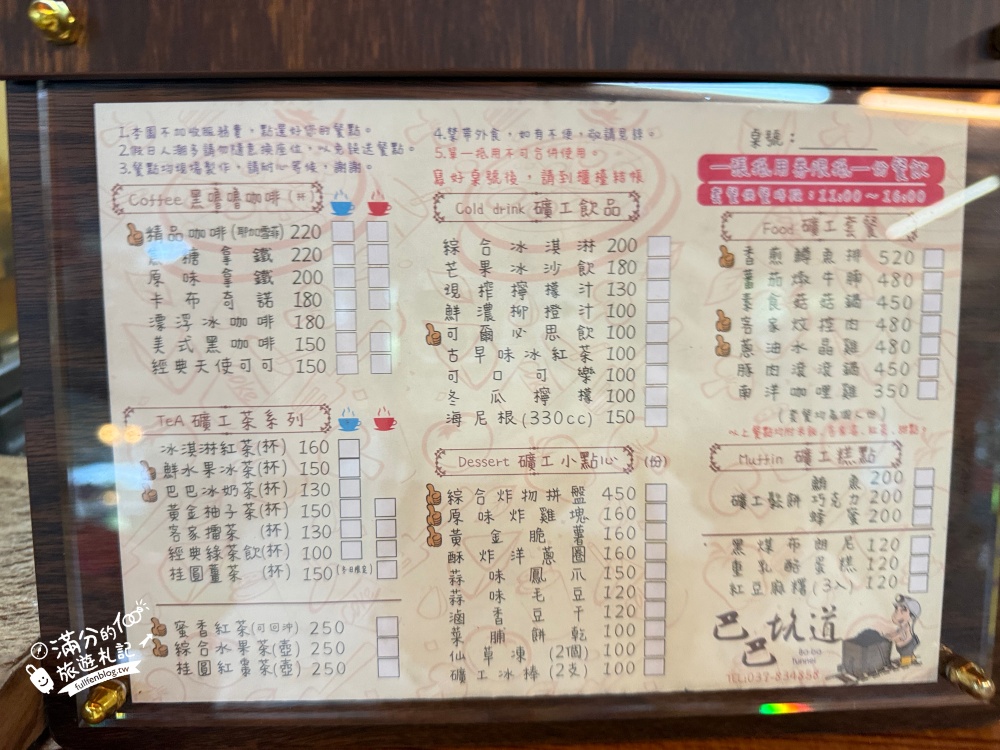 1.本園不加收服務費，點選好您的餐點。
2.假日人潮多請勿隨意換座位，以免誤送餐點。
3.餐點均現場製作，請耐心等候，謝謝。
4.禁帶外食，如有不便，敬請見諒。
5.單一抵用不可合併使用。
寫好桌號後，請到櫃檯結帳
桌號：
一張抵用券限抵一份餐飲
套餐供餐時段：11:00~16:00
Coffee 黑嚕嚕咖啡(杯)
精品咖啡(耶加雪菲) 220
焦糖拿鐵 220
原味拿鐵 200
卡布奇諾 180
漂浮冰咖啡 180
美式黑咖啡 150
經典天使可可 150
TeA 礦工茶系列
冰淇淋紅茶(杯) 160
鮮水果冰茶(杯) 150
巴巴冰奶茶(杯) 130
黃金柚子茶(杯) 150
客家擂茶 (杯) 130
經典綠茶飲(杯) 100
桂圓薑茶 (杯) 150(冬日限定)
蜜香紅茶(可回沖) 250
綜合水果茶(壺) 250
桂圓紅棗茶(壺) 250
Cold drink 礦工飲品
綜合冰淇淋 200
芒果冰沙飲 180
現搾檸檬汁 130
鮮濃柳橙汁 100
可爾必思飲 100
古早味冰紅茶 100
可口可樂 100
冬瓜檸檬 100
海尼根(330cc) 150
Dessert 礦工小點心 (份)
綜合炸物拼盤 450
原味炸雞塊 160
黃金脆薯 160
酥炸洋蔥圈 160
蒜味鳳爪 150
蒜味毛豆 120
滷香豆干 120
菜脯餅乾 100
仙草凍 (2個) 100
礦工冰棒(2支) 100
Food 礦工套餐
香煎鱒魚排 520
蕃茄燉牛腩 480
素食菇菇鍋 450
客家炆控肉 480
蔥油水晶雞 480
豚肉滾滾鍋 450
南洋咖哩雞 350
(套餐均為個人份)
Muffin 礦工糕點
鮪魚 200
礦工鬆餅 巧克力 200
蜂蜜 200
黑煤布朗尼 120
重乳酪蛋糕 120
紅豆麻糬(3入) 120
巴巴坑道
Ba-ba
Tunnel
TEL:037-834858
滿分的
旅遊札記
fullfenblog.tw